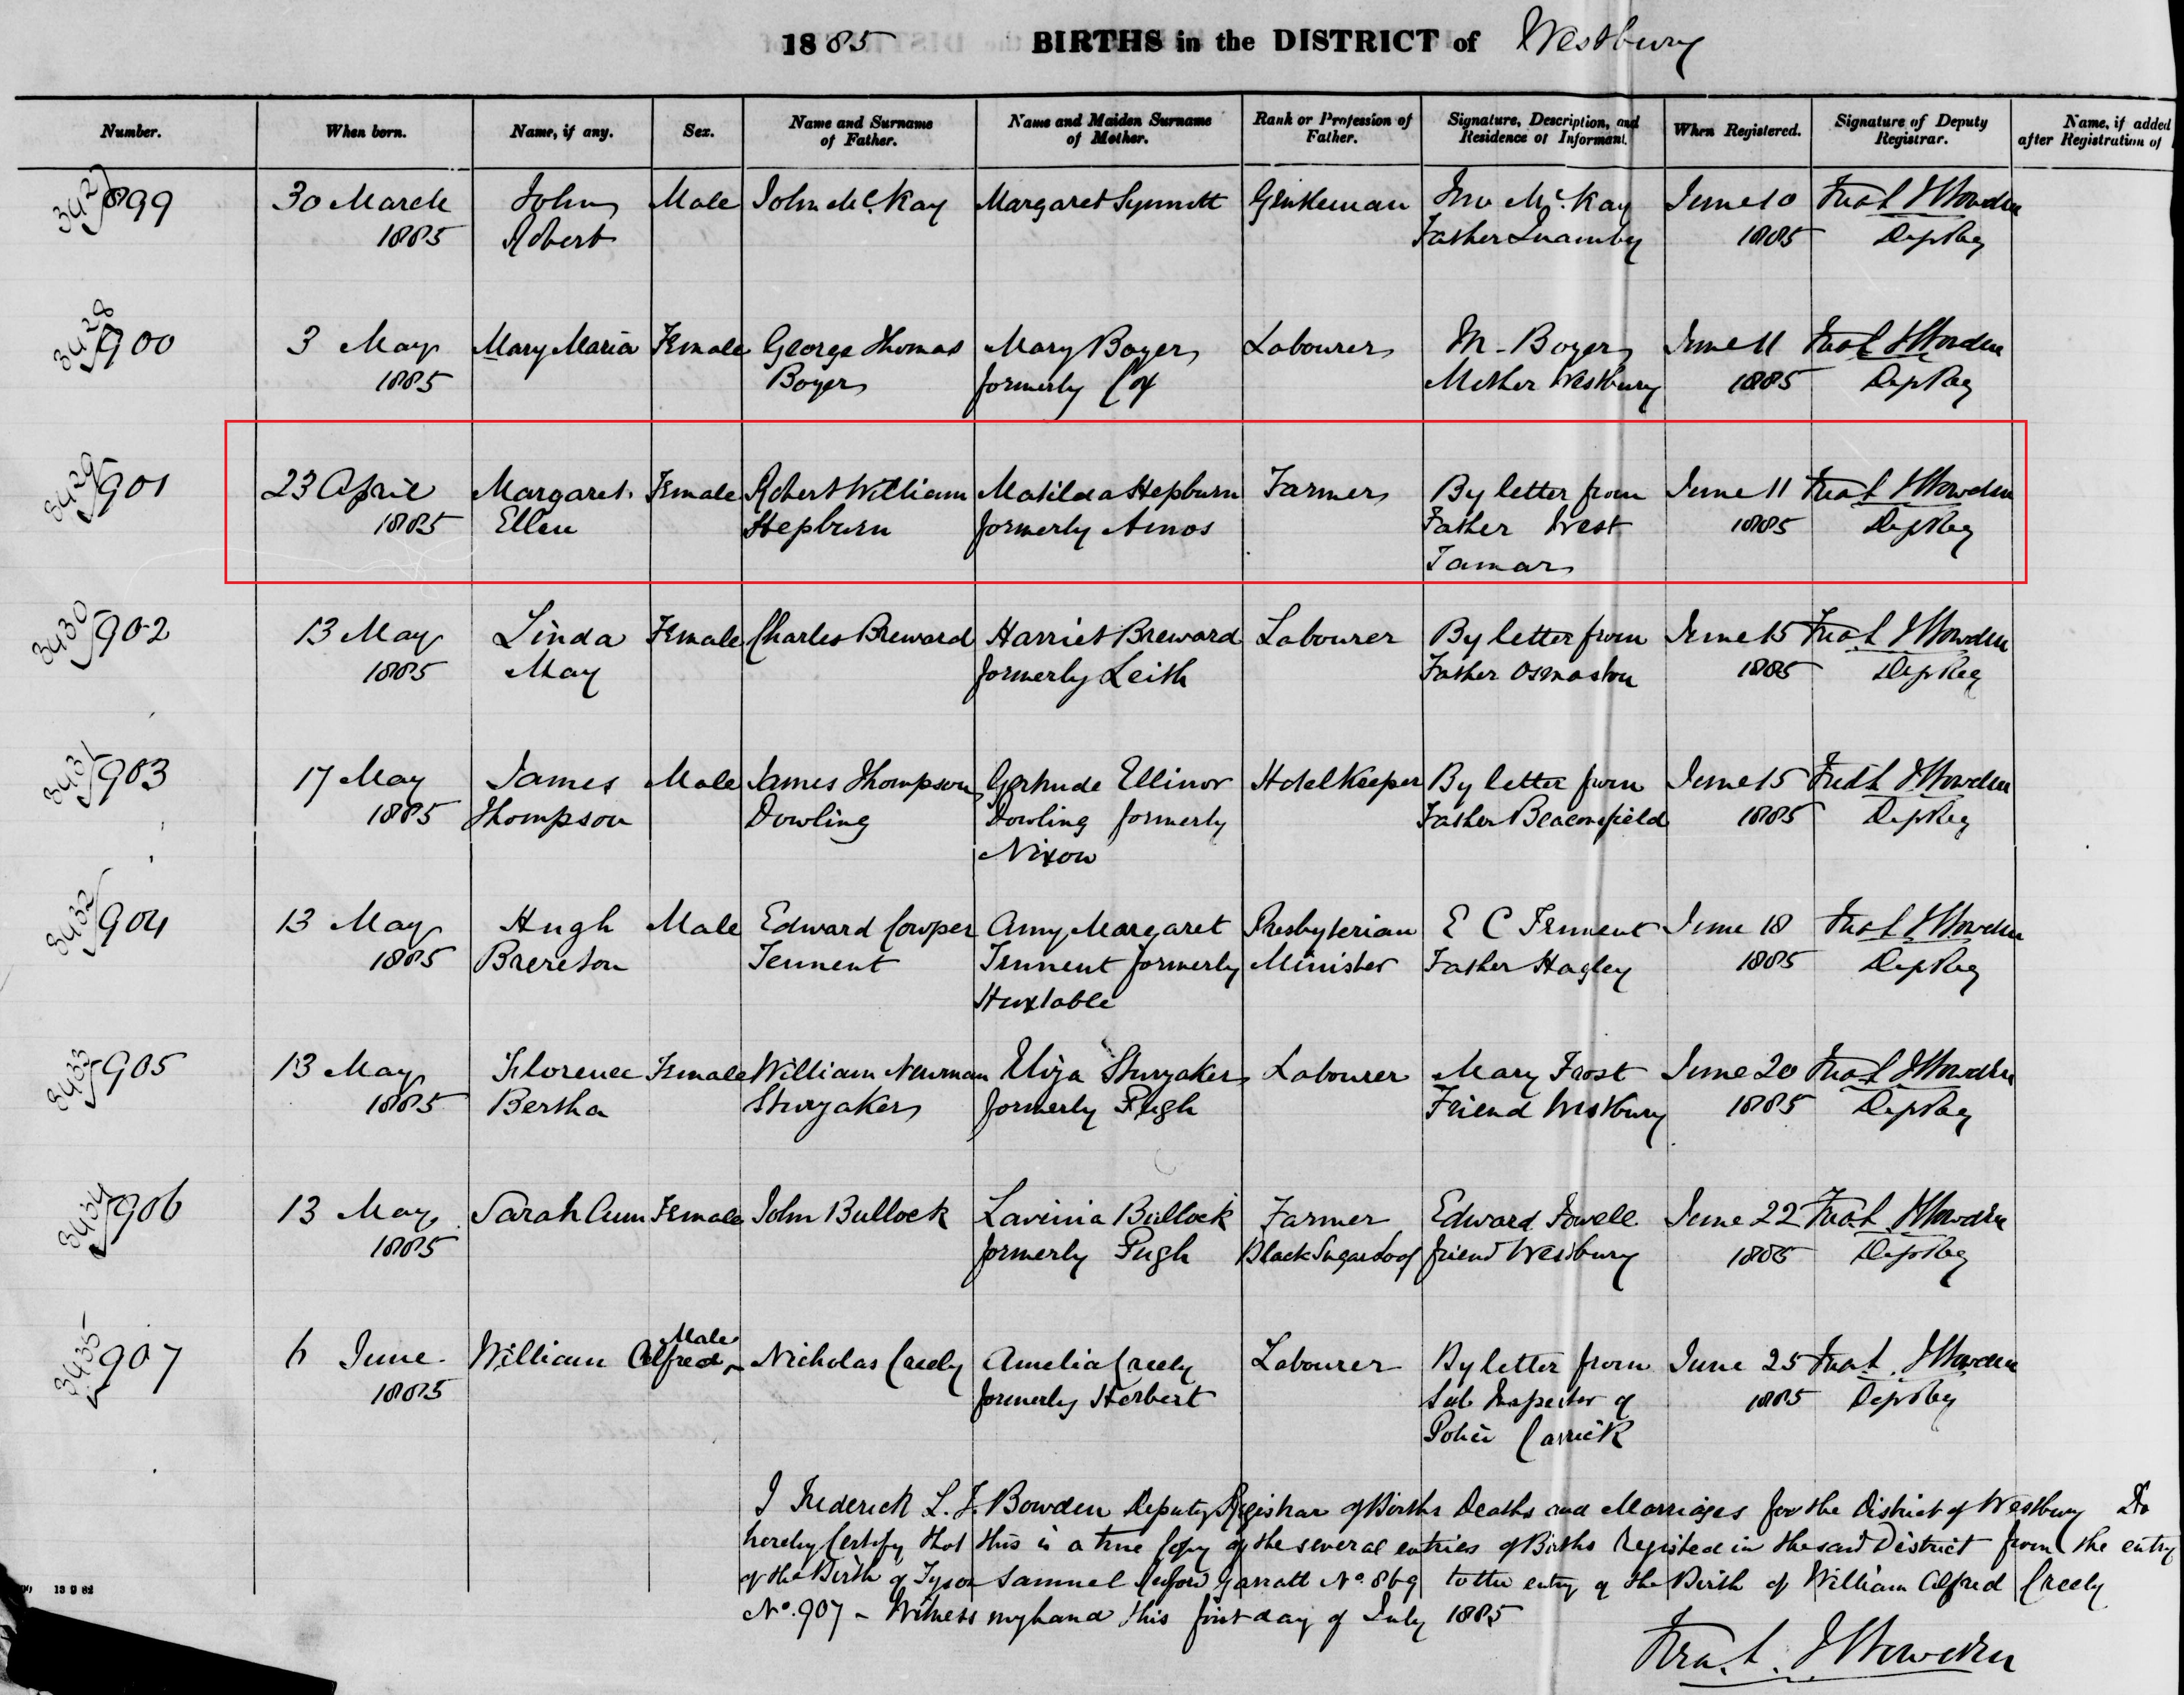 1885 BIRTHS in the DISTRICT of Westbury
Number. When born. Name, if any. Sex. Name and Surname of Father. Name and Maiden Surname of Mother. Rank or Profession of Father. Signature, Description, and Residence of Informant. When Registered. Signature of Deputy Registrar. Name, if added after Registration of
3427 899 30 March John Male John McKay Margaret Synnott Gentleman Jno McKay June 10 Fredk L J Bowden
1885 Robert Father Quamby 1885 Dep Reg
3428 900 3 May Mary Maria Female George Thomas Mary Boyer Labourer M. Boyer June 11 Fredk L J Bowden
1885 Boyer formerly Cox Mother Westbury 1885 Dep Reg
3429 901 23 April Margaret Female Robert William Matilda Hepburn Farmer By letter from June 11 Fredk L J Bowden
1885 Ellen Hepburn formerly Amos Father West 1885 Dep Reg
Tamar
3430 902 13 May Linda Female Charles Breward Harriet Breward Labourer By letter from June 15 Fredk L J Bowden
1885 May formerly Leith Father Osmaston 1885 Dep Reg
3431 903 17 May James Male James Thompson Gertrude Ellinor Hotel Keeper By letter from June 15 Fredk L J Bowden
1885 Thompson Dowling Dowling formerly Father Beaconsfield 1885 Dep Reg
Nixon
3432 904 13 May Hugh Male Edward Cowper Amy Margaret Presbyterian E C Tennent June 18 Fredk L J Bowden
1885 Brereton Tennent Tennent formerly Minister Father Hagley 1885 Dep Reg
Huxtable
3433 905 13 May Florence Female William Newman Eliza Sturzaker Labourer Mary Frost June 20 Fredk L J Bowden
1885 Bertha Sturzaker formerly Pugh Friend Westbury 1885 Dep Reg
3434 906 13 May Sarah Ann Female John Bullock Lavinia Bullock Farmer Edward Fowell June 22 Fredk L J Bowden
1885 formerly Pugh Black Sugar Loaf friend Westbury 1885 Dep Reg
Male
3435 907 6 June William Alfred Nicholas Creely Amelia Creely Labourer By letter from June 25 Fredk L J Bowden
1885 formerly Herbert Sub Inspector of 1885 Dep Reg
Police Carrick
I Frederick L. J. Bowden Deputy Registrar of Births Deaths and Marriages for the District of Westbury Do
hereby Certify that this is a true Copy of the several entries of Births Registed in the said District from the entry
of the Birth of Tyson Samuel Garratt No. 869 to the entry of the Birth of William Alfred Creely
No. 907 - Witness my hand this first day of July 1885
Fredk. L. J Bowden
13 9 82